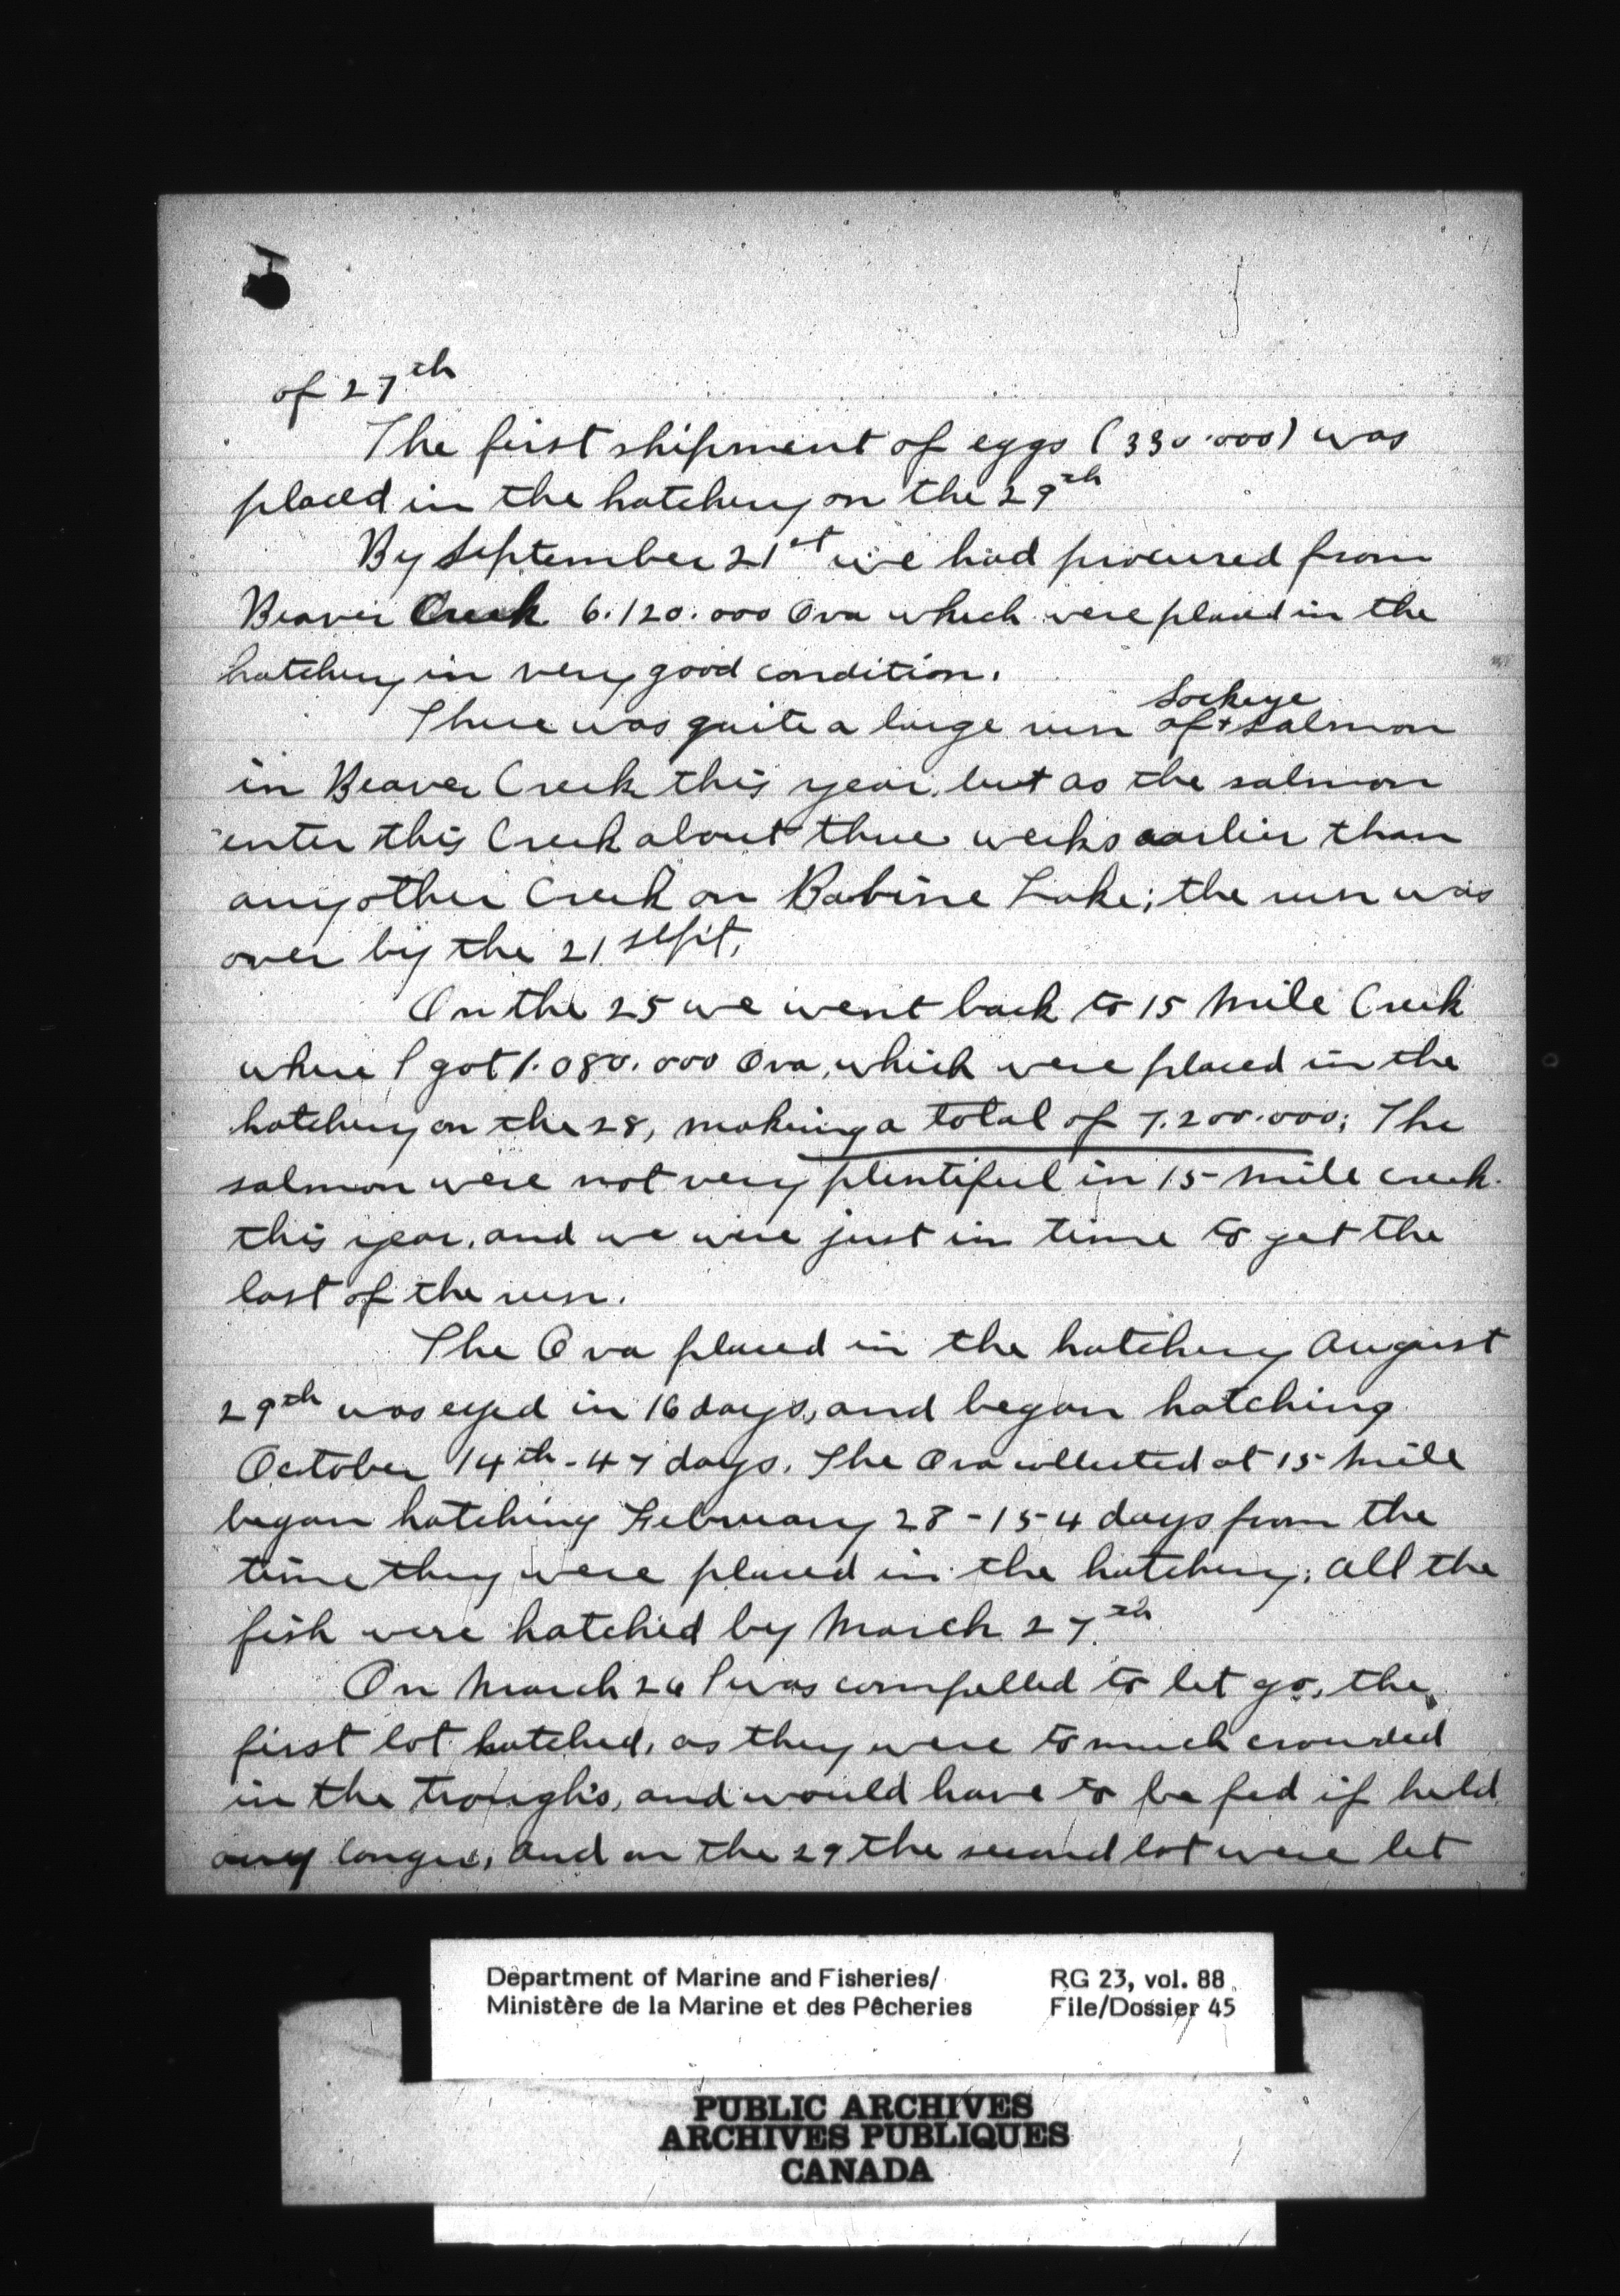 of 27th
The first shipment of eggs (330.000) was
placed in the hatchery on the 29th
By September 21st we had procured from
Beaver Creek 6.120.000 Ova which were placed in the
hatchery in very good condition.
Sockeye
There was quite a large run of + salmon
in Beaver Creek this year, but as the salmon
enter this Creek about three weeks earlier than
any other Creek on Babine Lake; the run was
over by the 21 Sept,
On the 25 we went back to 15 Mile Creek
where I got 1.080.000 Ova, which were placed in the
hatchery on the 28, making a total of 7.200.000; The
salmon were not very plentiful in 15 mile creek
this year, and we were just in time to get the
last of the run.
The Ova placed in the hatchery August
29th was eyed in 16 days, and began hatching
October 14th - 47 days. The Ova collected at 15 Mile
began hatching February 28 - 154 days from the
time they were placed in the hatchery; all the
fish were hatched by March 27th
On March 26 I was compelled to let go, the
first lot hatched, as they were to much crowded
in the trough's, and would have to be fed if held
any longer, and on the 29 the second lot were let
Department of Marine and Fisheries/
Ministère de la Marine et des Pêcheries
RG 23, vol. 88
File/Dossier 45
PUBLIC ARCHIVES
ARCHIVES PUBLIQUES
CANADA